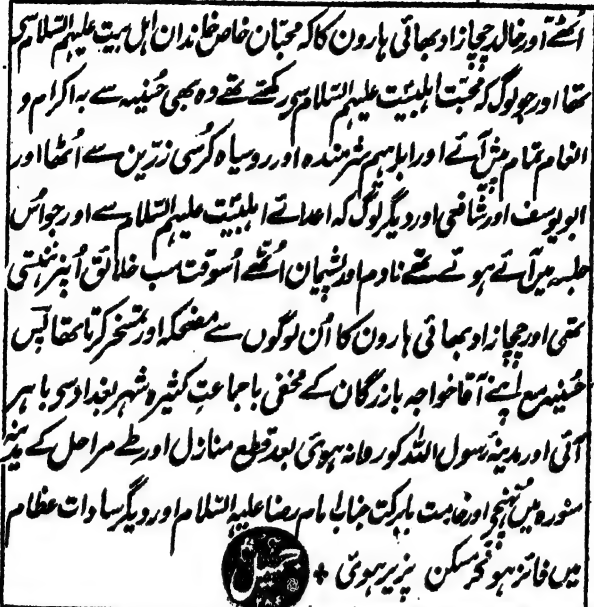 اُٹھے اور خالد چچازاد بھائی ہارون کا کہ محبّان خاص خاندان اہل بیت علیہم السّلام سی
تھا اور جو لوگ کہ محبّت اہلبیئت علیہم السّلام سو رکھتے تھے وہ بھی حُسنیہ سے بہ اکرام و
انعام تمام پیش آئے اور ابراہیم شرمندہ اور روسیاہ کرُسی زرّین سے اُٹھا اور
ابو یوسف اور شافعی اور دیگر لوگ کہ اعدائے اہلبیئت علیہم السّلام سے اور جو اُس
جلسہ میں آئے ہوئے تھے نادم اور پشیمان اُٹھے اُسوقت سب خلائق اُنپر ہنستی
تھی اور چچازاد بھائی ہارون کا اُن لوگوں سے مضحکہ اور تمسخر کرتا تھا پس
حُسنیہ مع اپنے آقا خواجہ بازرگان کے مخفی با جماعت کثیرہ شہر بغداد سی باہر
آئی اور مدینۂ رسول اللہ کو روانہ ہوئی بعد قطع منازل اور طے مراحل کے مدینہ
منورہ میں پہنچی اور خدمت بابرکت جناب امام رضا علیہ السّلام اور دیگر سادات عظام
میں فائز ہو کر مسکن پزیر ہوئی +
جمیل